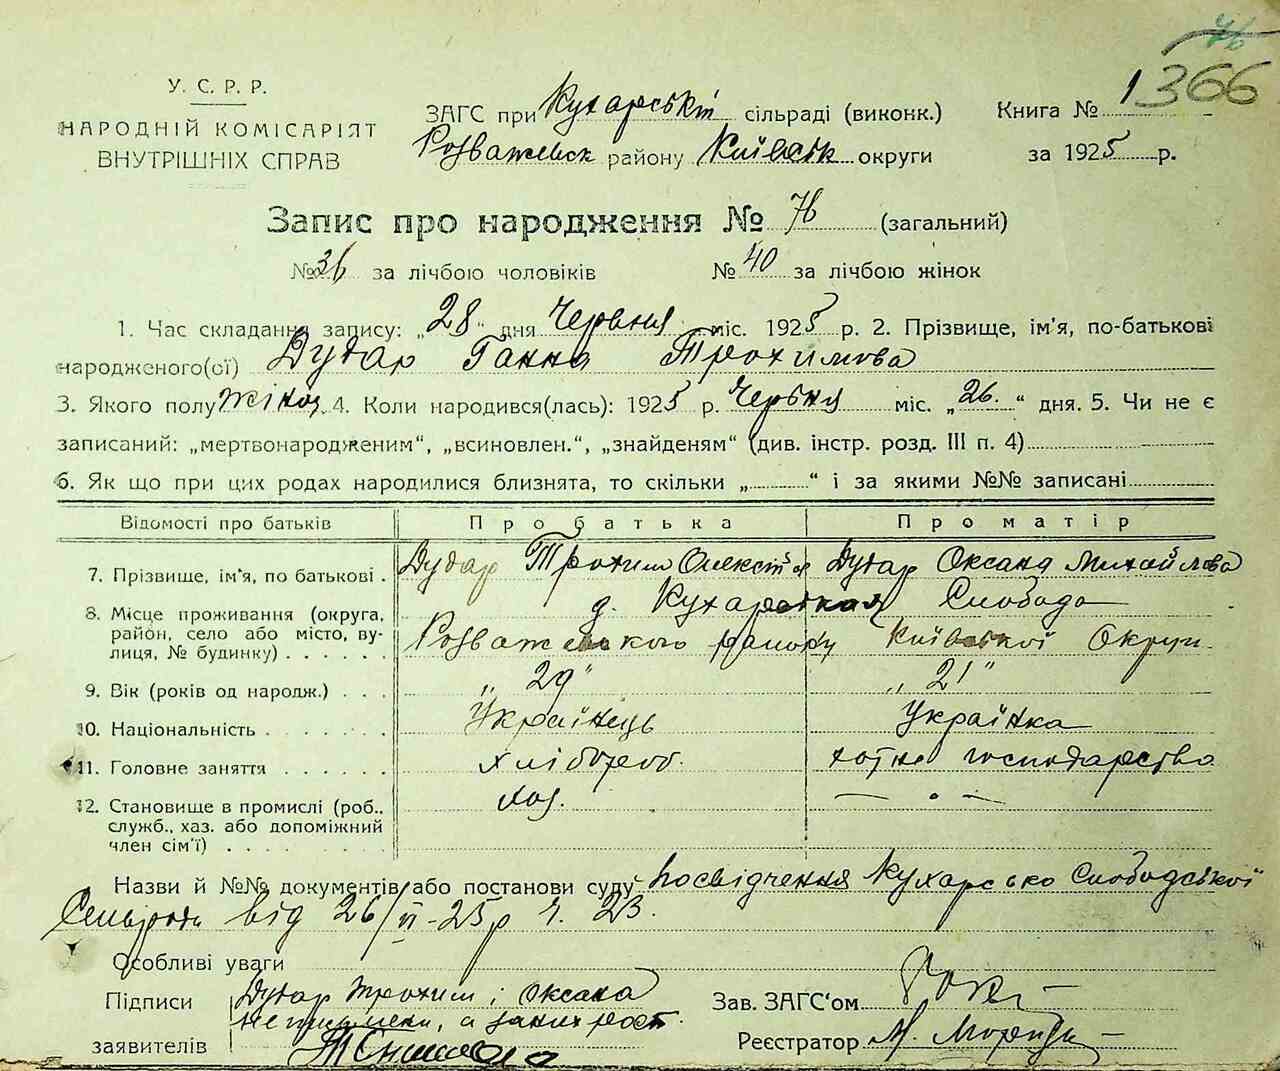 76
1366
У. С. Р. Р.
НАРОДНІЙ КОМІСАРІЯТ
ВНУТРІШНІХ СПРАВ
ЗАГС при Кухарській сільраді (виконк.)
Розважевск району Київськ округи
Книга № 1
за 1925 р.
Запис про народження № 76 (загальний)
№ 36 за лічбою чоловіків № 40 за лічбою жінок
1. Час складання запису: „28" дня Червня міс. 1925 р. 2. Прізвище, ім'я, по-батькові
народженого(ої) Дудар Ганна Трохимова
3. Якого полу жіноч. 4. Коли народився(лась): 1925 р. Червня міс. „26." дня. 5. Чи не є
записаний: „мертвонародженим", „всиновлен.", „знайденям" (див. інстр. розд. III п. 4)
6. Як що при цих родах народилися близнята, то скільки „ " і за якими №№ записані
Відомості про батьків Про батька Про матір
7. Прізвище, ім'я, по батькові. Дудар Трохим Дудар Оксана Михайлова
8. Місце проживання (округа, район, село або місто, вулиця, № будинку) д. Кухарская Слобода
Розважевського району Київської Округи.
9. Вік (років од народж.) „29" „21"
10. Національність Українець Українка
11. Головне заняття хлібороб. хатнє господарство
12. Становище в промислі (роб., служб., хаз. або допоміжний член сім'ї) хаз. —
Назви й №№ документів або постанови суду Посвідчення Кухарсько Слободської
Сельради від 26/VI-25р ч. 23.
Особливі уваги
Підписи заявителів Дудар Трохим і Оксана
неписьмени, а за них рост.
Зав. ЗАГС'ом
Реєстратор